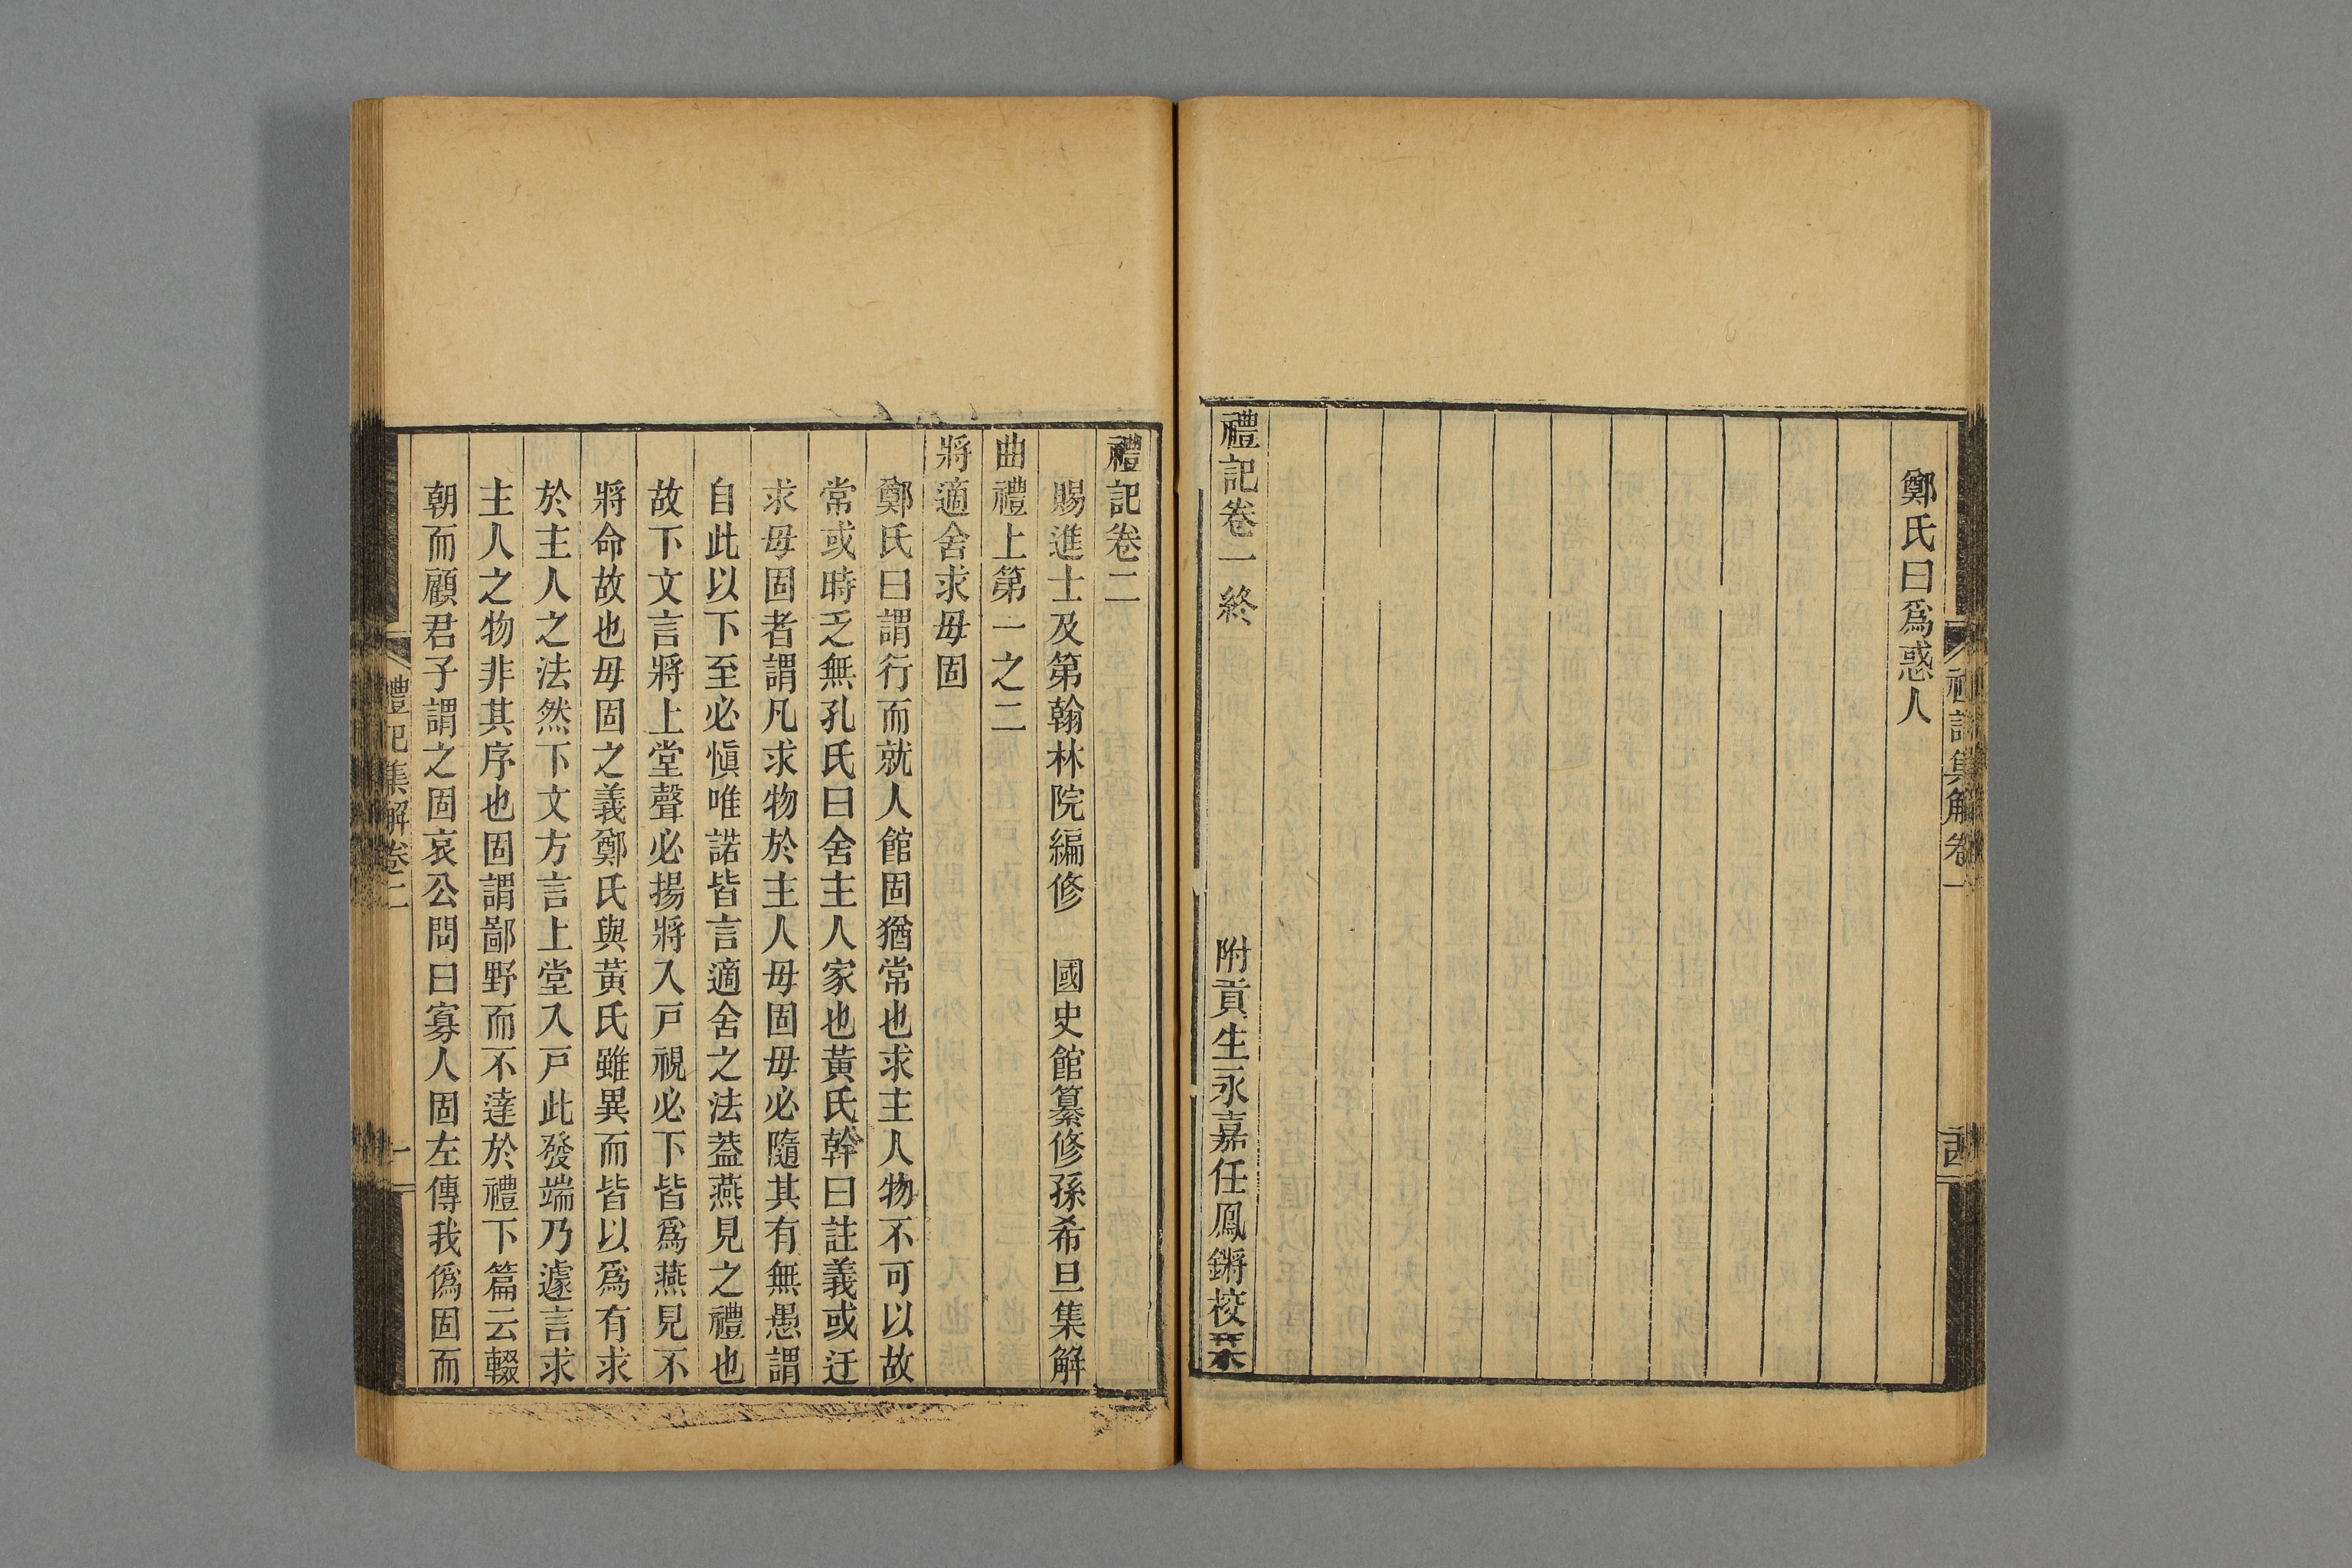 鄭氏曰爲惑人
禮記卷一終
附貢生永嘉任鳳鏘校栞
禮記集解卷一
禮記卷二
賜進士及第翰林院編修 國史館纂修孫希旦集解
曲禮上第一之二
將適舍求毋固
鄭氏曰謂行而就人館固猶常也求主人物不可以故
常或時乏無孔氏曰舍主人家也黃氏幹曰註義或迂
求毋固者謂凡求物於主人毋固毋必隨其有無愚謂
自此以下至必愼唯諾皆言適舍之法葢燕見之禮也
故下文言將上堂聲必揚將入戸視必下皆爲燕見不
將命故也毋固之義鄭氏與黃氏雖異而皆以爲有求
於主人之法然下文方言上堂入戸此發端乃遽言求
主人之物非其序也固謂鄙野而不達於禮下篇云輟
朝而顧君子謂之固哀公問曰寡人固左傳我僞固而
禮記集解卷二
一